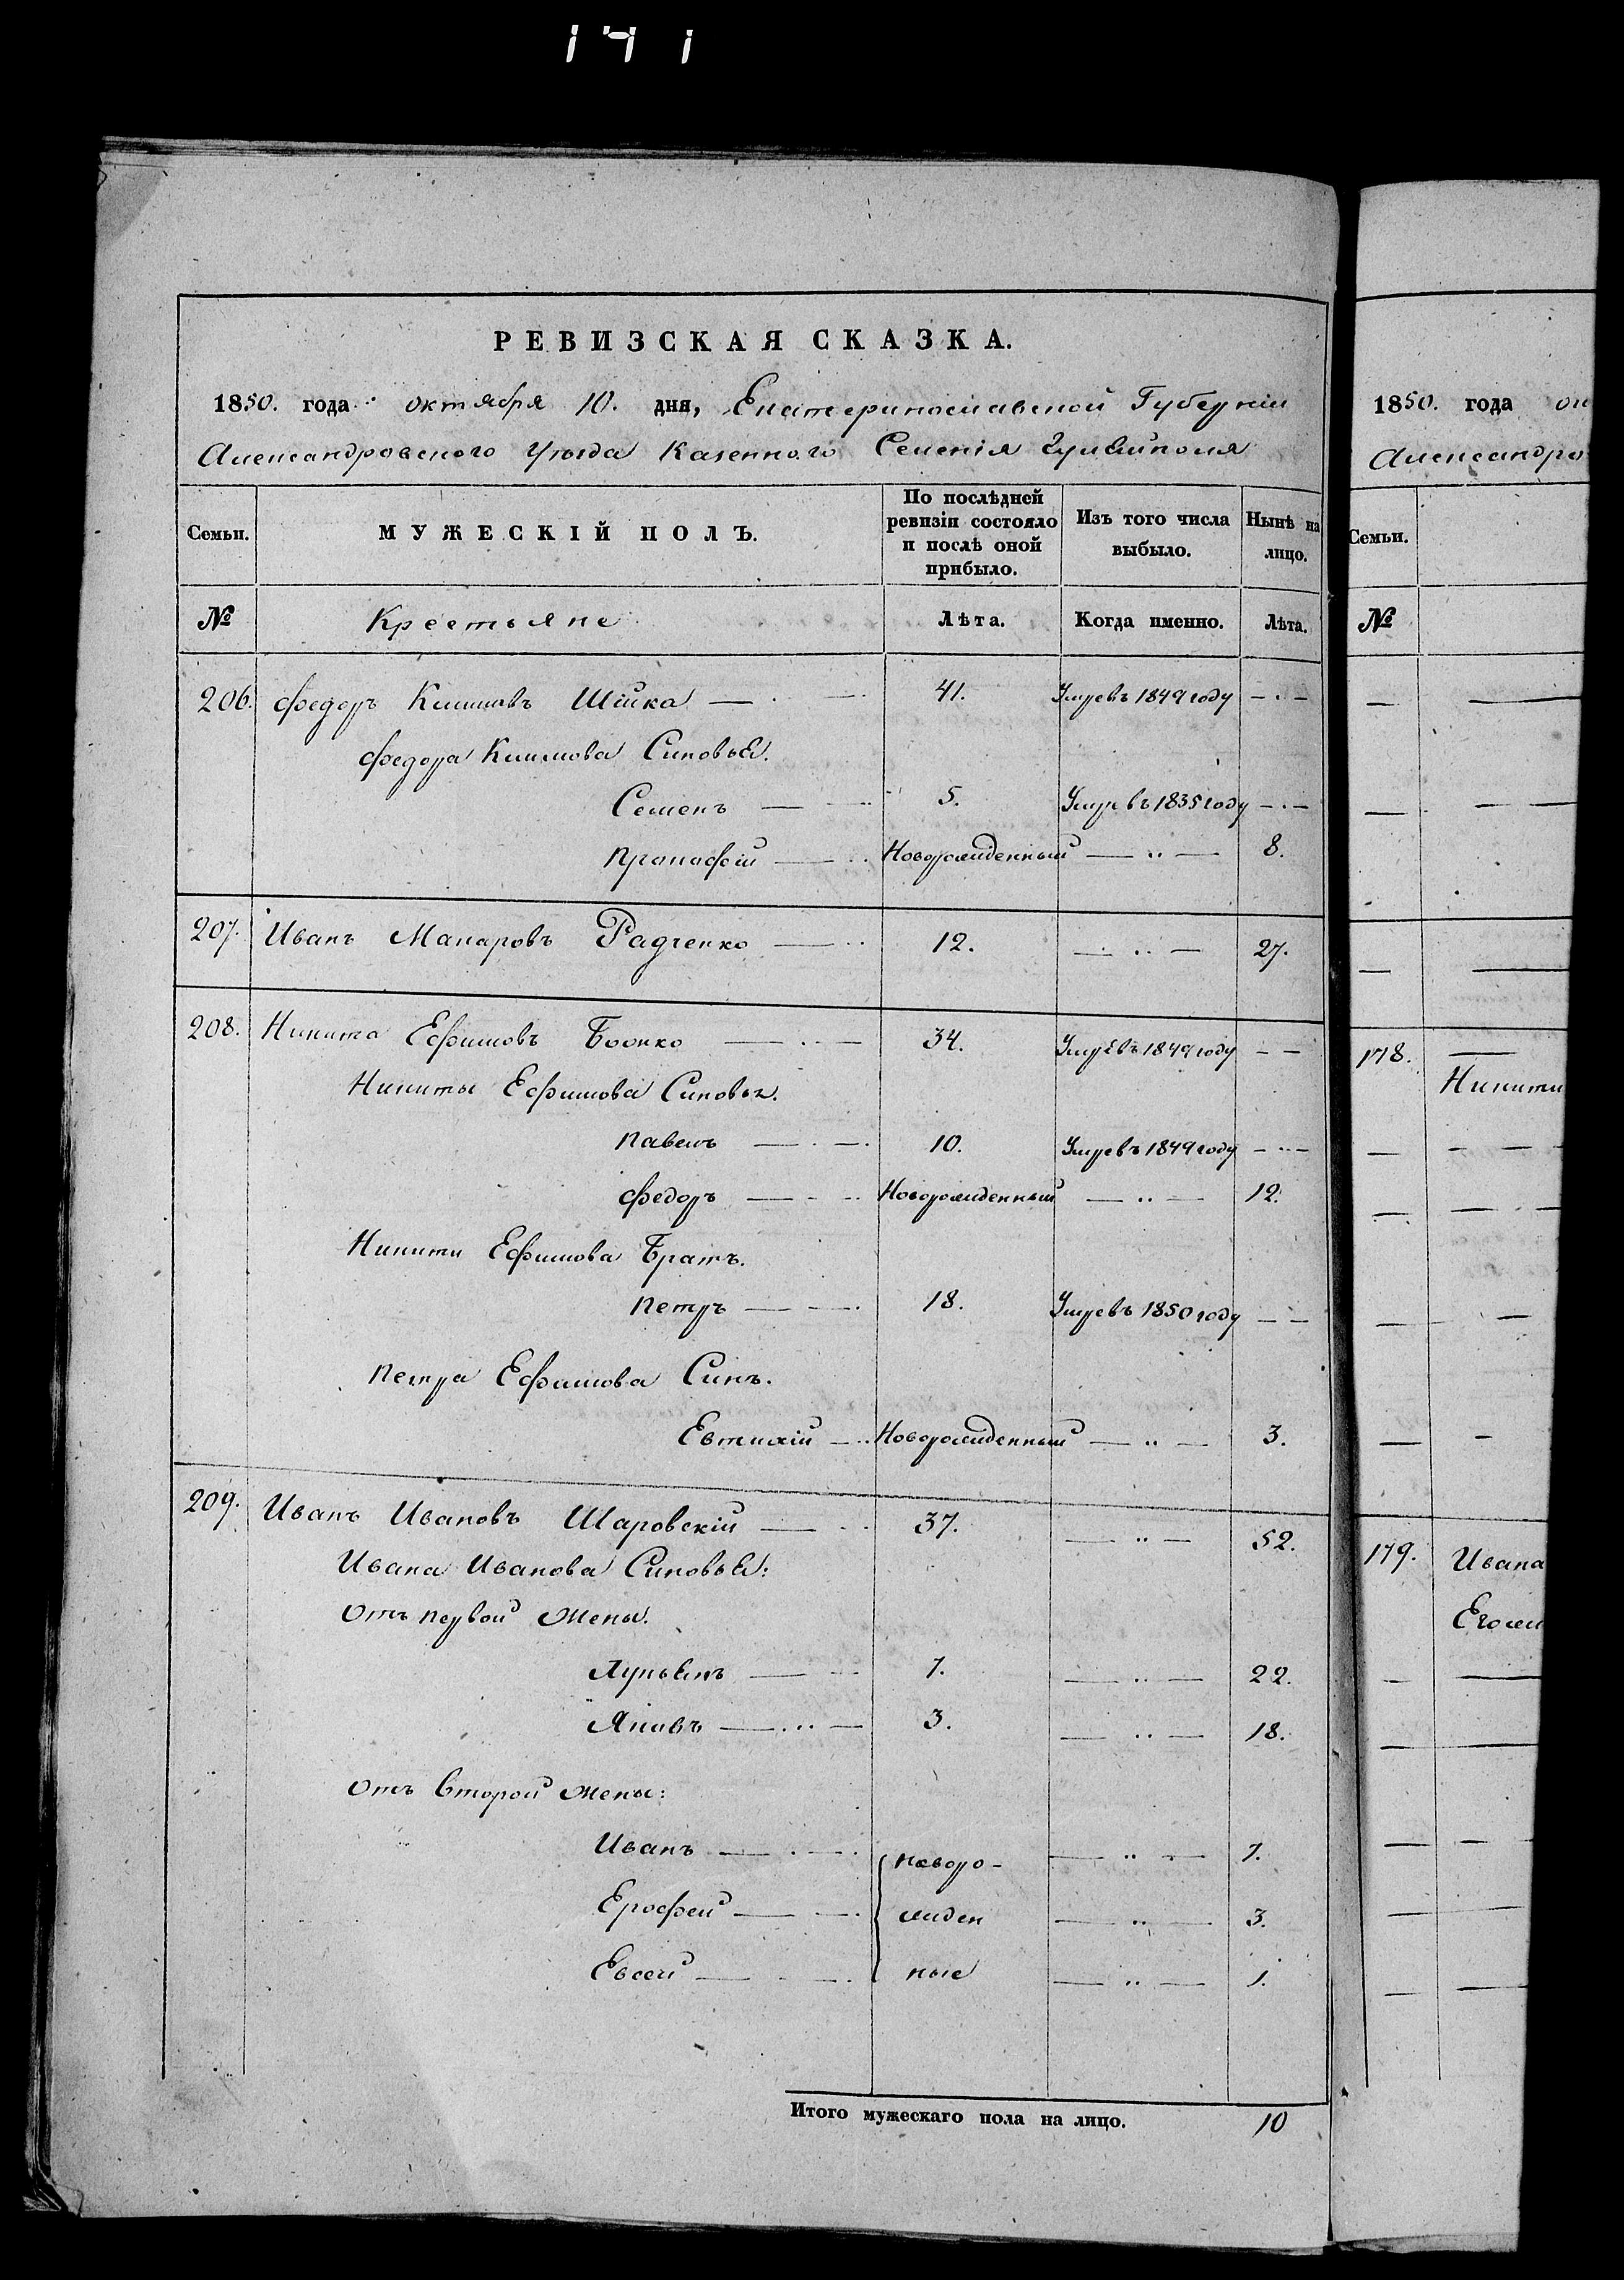 141
РЕВИЗСКАЯ СКАЗКА.
1850. года октября 10. дня, Екатеринославской Губерніи
Александровского Уезда Казенного Селенія Гуляйполя
Семьи. МУЖЕСКІЙ ПОЛЪ. По послѣдней ревизіи состояло и послѣ оной прибыло. Изъ того числа выбыло. Нынѣ на лицо.
№ Крестьяне Лѣта. Когда именно. Лѣта.
206. Федоръ Климовъ Шійка 41. Умре въ 1849 году
Федора Климова Синовья.
Семенъ 5. Умре въ 1835 году
Прокофій Новорожденный 8.
207. Иванъ Макаровъ Радченко 12. 27.
208. Никита Ефимовъ Бойко 34. Умре въ 1849 году
Никиты Ефимова Синовья.
Павелъ 10. Умре въ 1849 году
Федоръ Новорожденный 12.
Никити Ефимова Братъ.
Петръ 18. Умре въ 1850 году
Петра Ефимова Синъ.
Евтихій Новорожденный 3.
209. Иванъ Ивановъ Шаровскій 37. 52.
Ивана Иванова Синовья:
Отъ первой Жены.
Лукьянъ 7. 22.
Яковъ 3. 18.
Отъ Второй Жены:
Иванъ новоро- 7.
Ерофей жден 3.
Евсей ные 1.
Итого мужескаго пола на лицо. 10
1850. года ок
Александро
Семьи.
№
178.
Никити
179. Ивана
Его жен